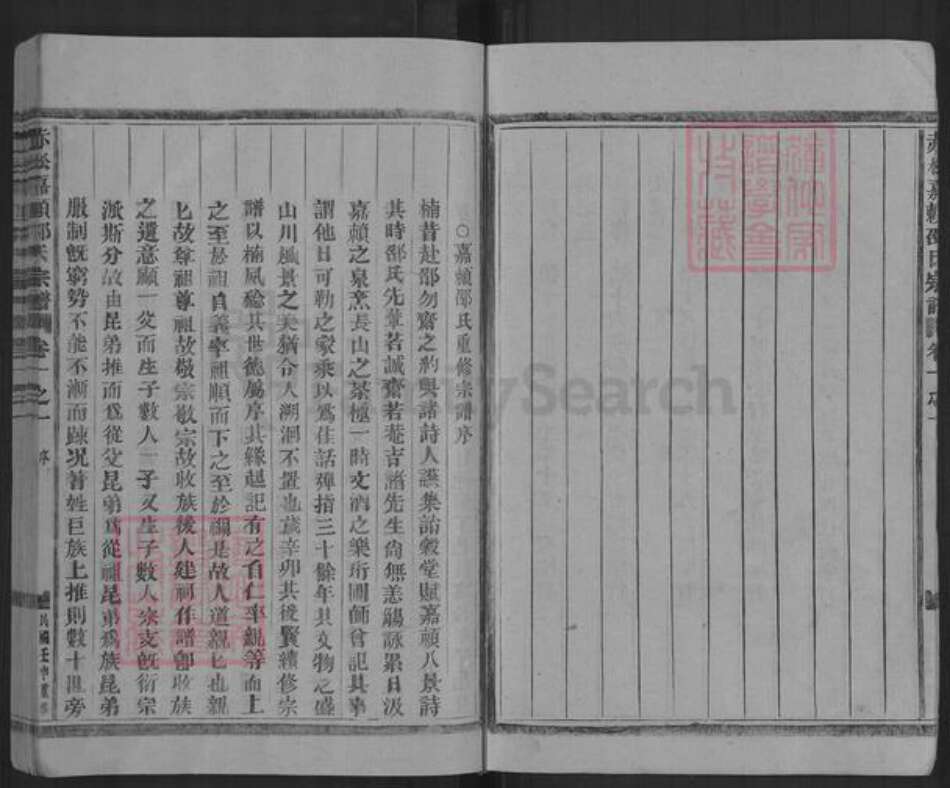 赤松嘉頖邵氏宗譜 卷一之一
○嘉頖邵氏重修宗譜序
楠昔赴邵勿齋之約與諸詩人讌集詒穀堂賦嘉頖八景詩
其時邵氏先輩若誠齋若菴吉諸先生尙無恙觴詠累日汲
嘉頖之泉烹長山之茶極一時文酒之樂珩圃師曾記其事
謂他日可勒之家乘以爲佳話彈指三十餘年其文物之盛
山川風景之美猶令人溯洄不置也歲辛卯其後賢續修宗
譜以楠夙稔其世德屬序其緣起記有之自仁率親等而上
之至於祖自義率祖順而下之至於禰是故人道親親也親
親故尊祖尊祖故敬宗敬宗故收族後人建祠作譜卽收族
之遺意顧一父而生子數人一子又生子數人宗支旣衍宗
派斯分故由昆弟推而爲從父昆弟爲從祖昆弟爲族昆弟
服制旣窮勢不能不漸而踈况著姓巨族上推則數十世旁
赤松嘉頖邵氏宗譜 卷一之一 序 民國壬申重修
FamilySearch